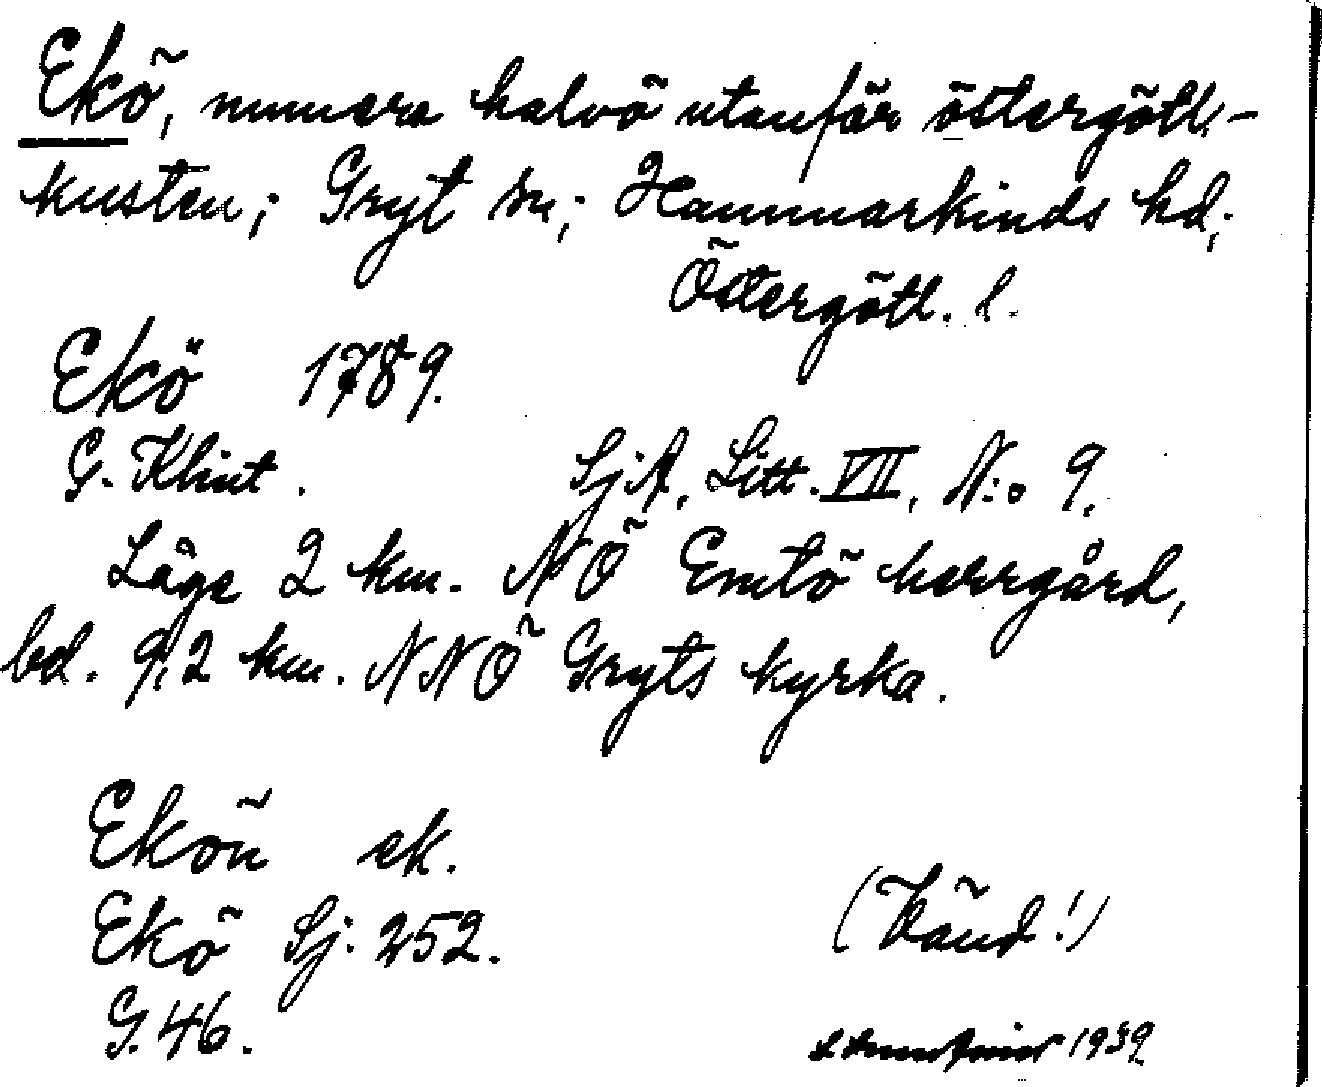 Ekö, numera halvö utanför östergötl.-
kusten; Gryt sn; Hammarkinds hd;
Östergötl. l.
Ekö 1789.
G. Klint. SjA, Litt. VII, N:o 9.
Läge 2 km. NÖ Emtö herrgård,
bd. 9,2 km. NNÖ Gryts kyrka.
Ekön ek.
Ekö Sj. 252. (Vänd!)
G. 46.
1939